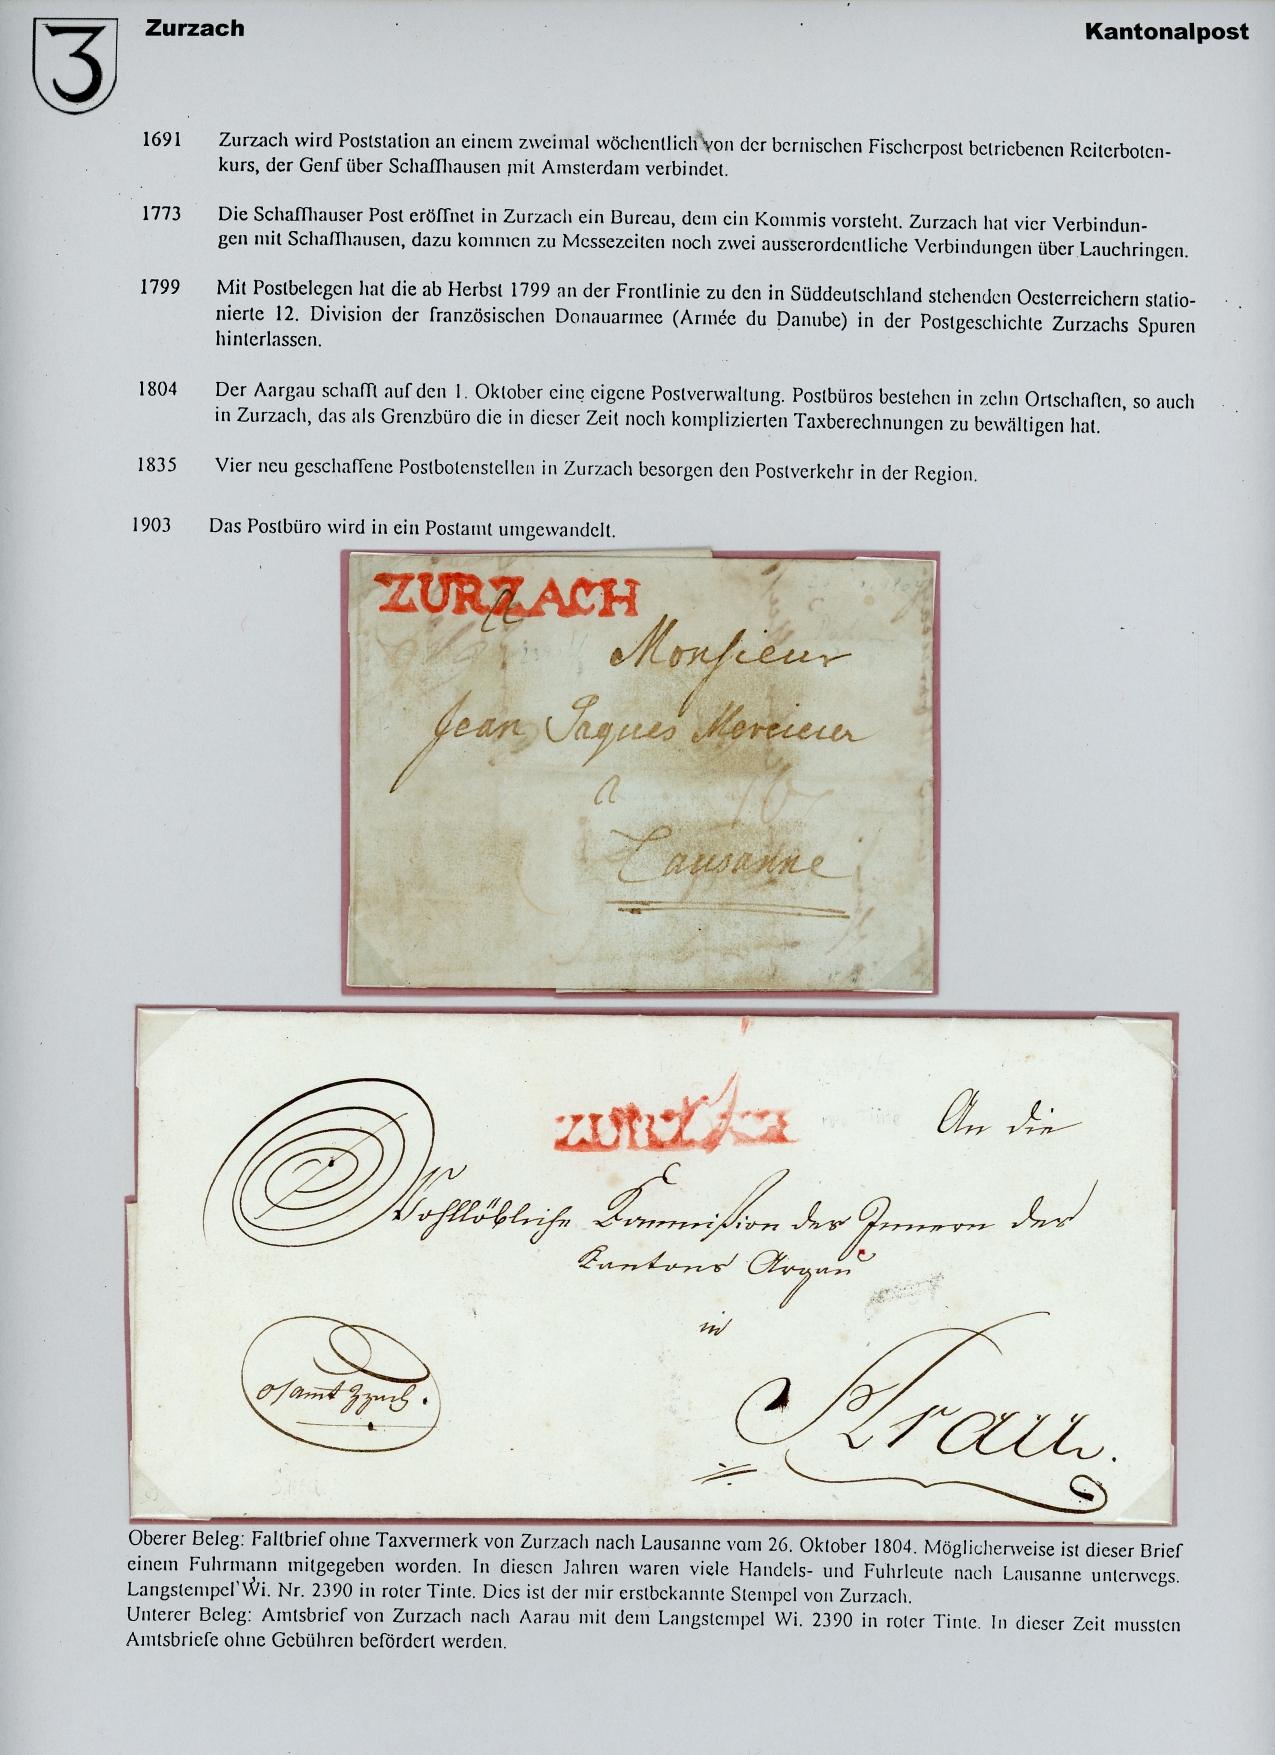 3
Zurzach
Kantonalpost
1691 Zurzach wird Poststation an einem zweimal wöchentlich von der bernischen Fischerpost betriebenen Reiterboten-
kurs, der Genf über Schaffhausen mit Amsterdam verbindet.
1773 Die Schaffhauser Post eröffnet in Zurzach ein Bureau, dem ein Kommis vorsteht. Zurzach hat vier Verbindun-
gen mit Schaffhausen, dazu kommen zu Messezeiten noch zwei ausserordentliche Verbindungen über Lauchringen.
1799 Mit Postbelegen hat die ab Herbst 1799 an der Frontlinie zu den in Süddeutschland stehenden Oesterreichern statio-
nierte 12. Division der französischen Donauarmee (Armée du Danube) in der Postgeschichte Zurzachs Spuren
hinterlassen.
1804 Der Aargau schafft auf den 1. Oktober eine eigene Postverwaltung. Postbüros bestehen in zehn Ortschaften, so auch
in Zurzach, das als Grenzbüro die in dieser Zeit noch komplizierten Taxberechnungen zu bewältigen hat.
1835 Vier neu geschaffene Postbotenstellen in Zurzach besorgen den Postverkehr in der Region.
1903 Das Postbüro wird in ein Postamt umgewandelt.
ZURZACH
Monsieur
Jean Jaques Mercieur
a
Lausanne
ZURZACH
An die
Wohllöbliche Kommission des Innern des
Kantons Argau
in
Arau.
Oberer Beleg: Faltbrief ohne Taxvermerk von Zurzach nach Lausanne vom 26. Oktober 1804. Möglicherweise ist dieser Brief
einem Fuhrmann mitgegeben worden. In diesen Jahren waren viele Handels- und Fuhrleute nach Lausanne unterwegs.
Langstempel Wi. Nr. 2390 in roter Tinte. Dies ist der mir erstbekannte Stempel von Zurzach.
Unterer Beleg: Amtsbrief von Zurzach nach Aarau mit dem Langstempel Wi. 2390 in roter Tinte. In dieser Zeit mussten
Amtsbriefe ohne Gebühren befördert werden.